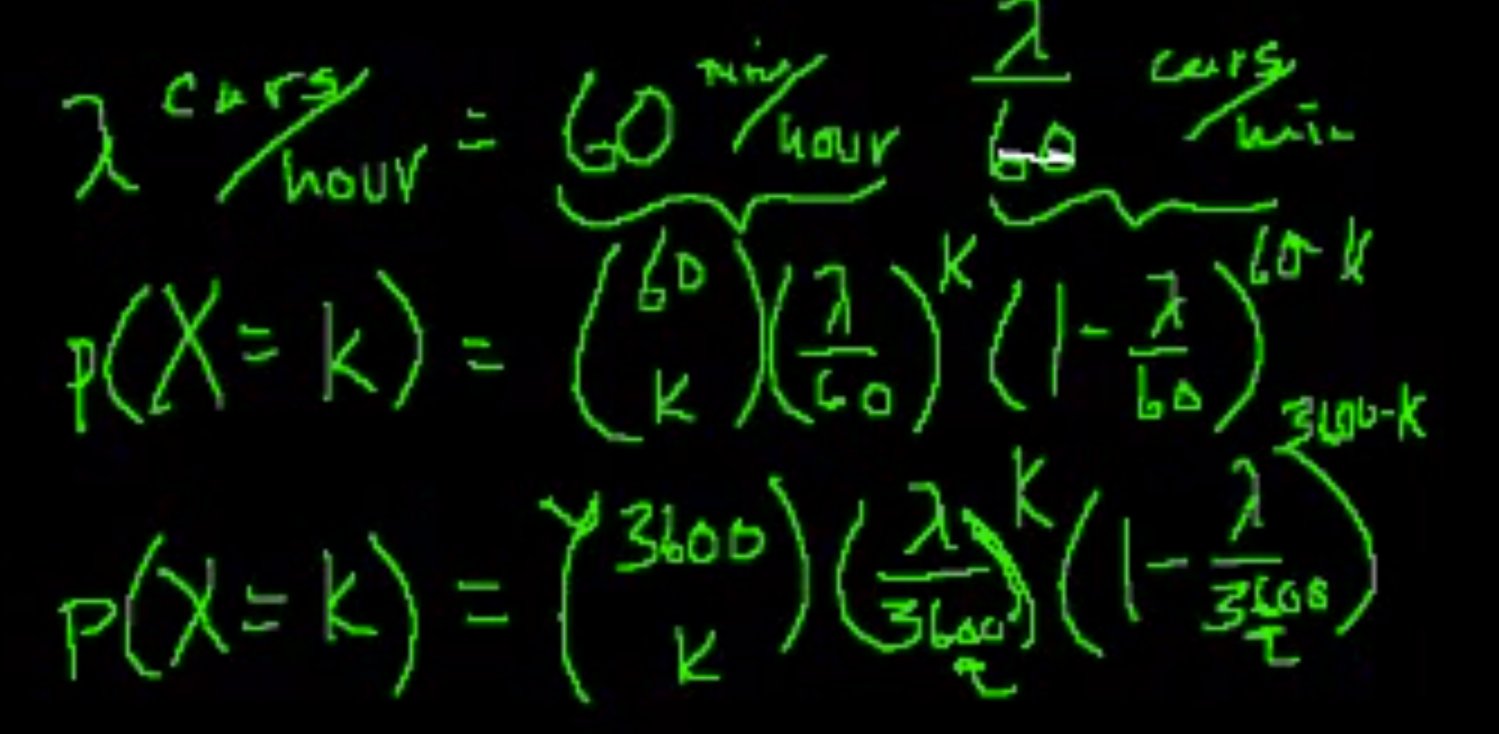 λ cars/hour = 60 min/hour λ/60 cars/min
P(X = k) = (60 k) (λ/60)^k (1 - λ/60)^60-k
P(X = k) = (3600 k) (λ/3600)^k (1 - λ/3600)^3600-k